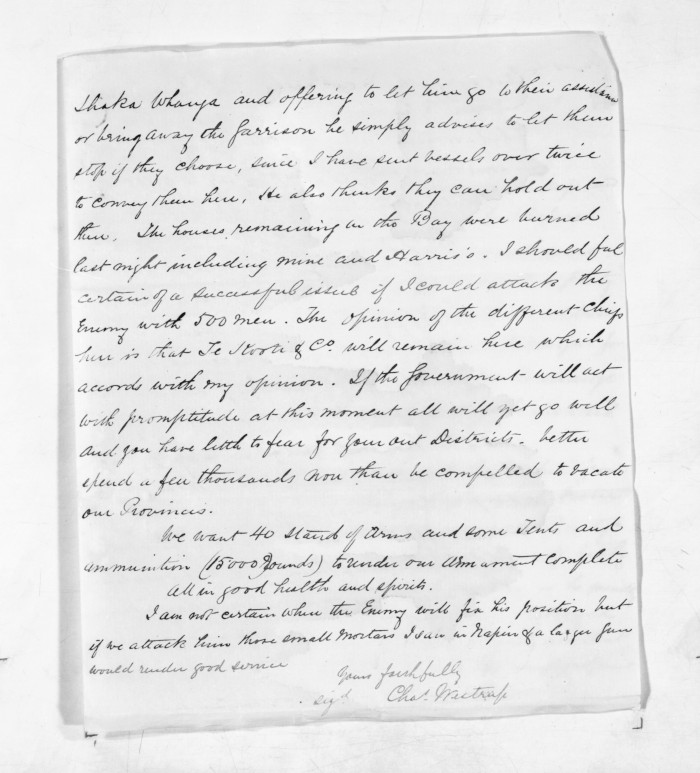 Ihaka Whanga and offering to let him go to their assistance
or bring away the Garrison he simply advises to let them
stop if they choose, since I have sent vessels over twice
to convey them here. He also thinks they can hold out
then. The houses remaining in the Bay were burned
last night including mine and Harris's. I should feel
certain of a successful issue if I could attack the
Enemy with 500 men. The opinion of the different Chiefs
here is that Te Kooti & Co. will remain here which
accords with my opinion. If the Government will act
with promptitude at this moment all will yet go well
and you have little to fear for your out Districts. better
spend a few thousands now than be compelled to vacate
our Provinces.
We want 40 stand of Arms and some Tents and
ammunition (15000 Rounds) to render our Armament complete
All in good health and spirits.
I am not certain when the Enemy will fix his position but
if we attack him those small Mortars I saw in Napier & a larger gun
would render good service
Yours faithfully
sigd Chas. Westrup